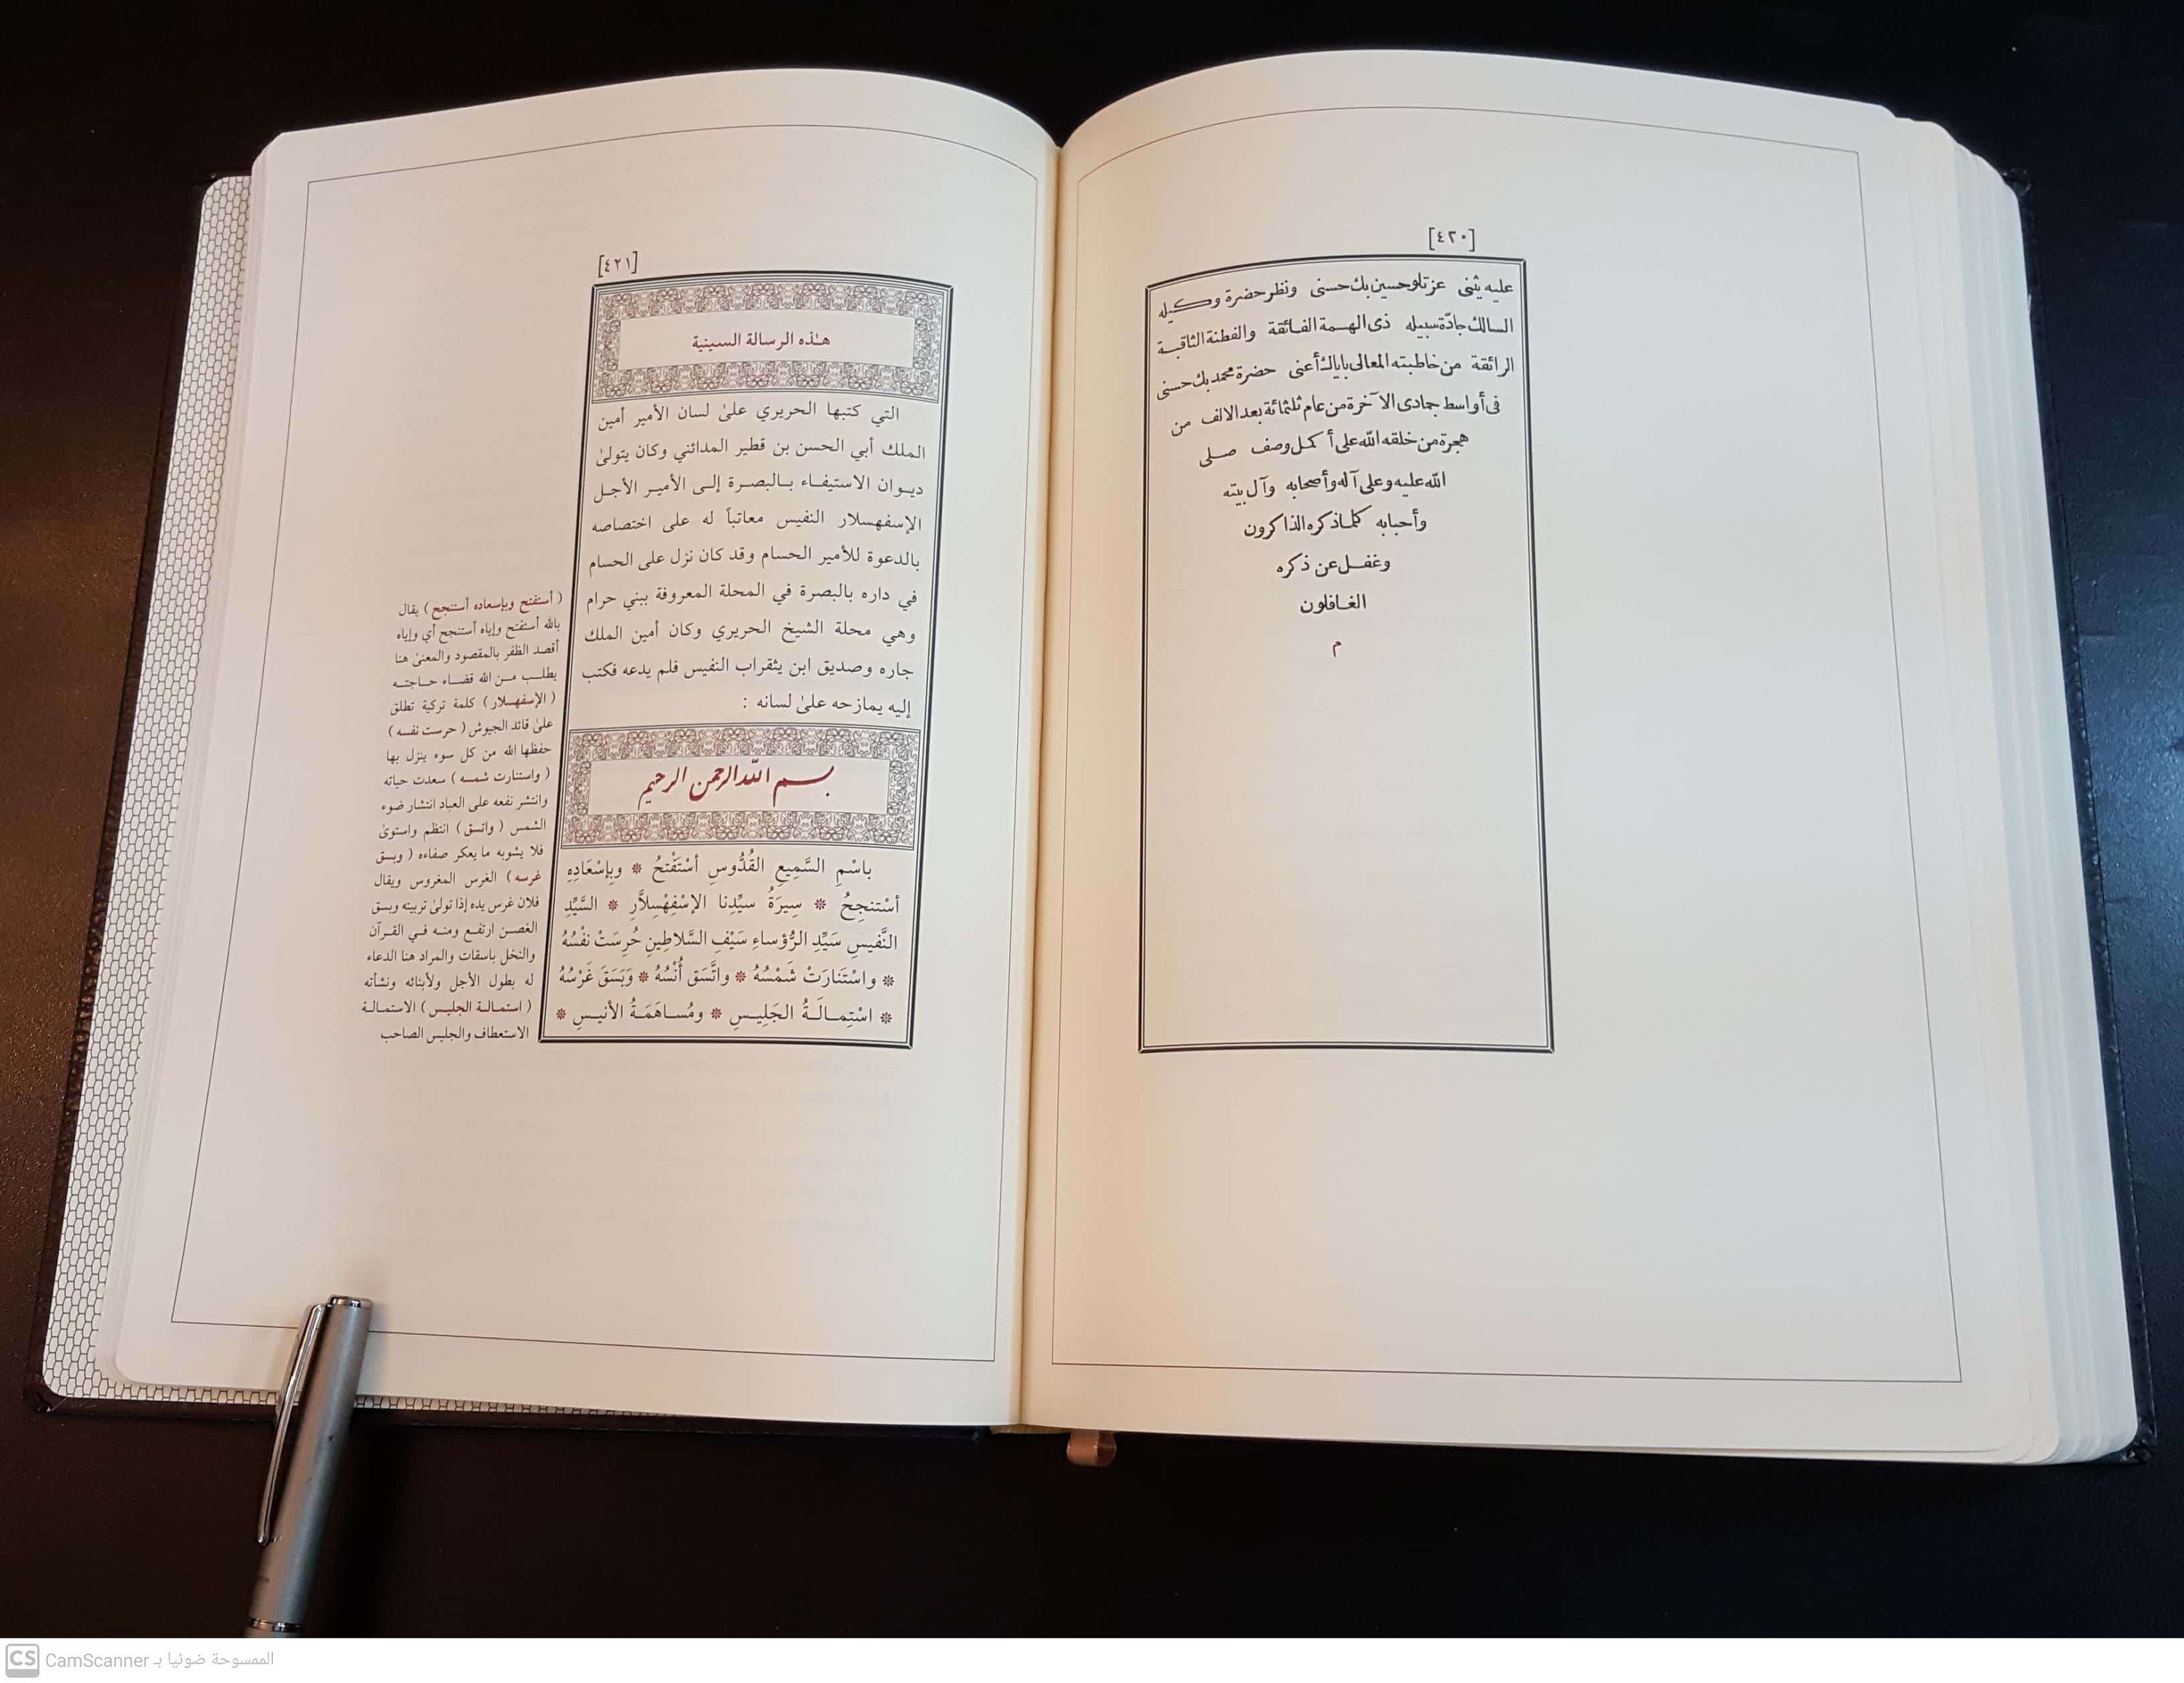 [٤٢٠]
عليه يثنى عزتلو حسين بك حسنى ونظر حضرة وكيله
السالك جادّة سبيله ذى الهمة الفائقة والفطنة الثاقبة
الرائقة من خاطبته المعالى باياك أعنى حضرة محمد بك حسنى
فى أواسط جمادى الآخرة من عام ثلثمائة بعد الالف من
هجرة من خلقه الله على أكمل وصف صلى
الله عليه وعلى آله وأصحابه وآل بيته
وأحبابه كلما ذكره الذاكرون
وغفل عن ذكره
الغافلون
م
[٤٢١]
هذه الرسالة السينية
التي كتبها الحريري علىٰ لسان الأمير أمين
الملك أبي الحسن بن قطير المدائني وكان يتولىٰ
ديوان الاستيفاء بالبصرة إلى الأمير الأجل
الإسفهسلار النفيس معاتباً له على اختصاصه
بالدعوة للأمير الحسام وقد كان نزل على الحسام
في داره بالبصرة في المحلة المعروفة ببني حرام
وهي محلة الشيخ الحريري وكان أمين الملك
جاره وصديق ابن يثقراب النفيس فلم يدعه فكتب
إليه يمازحه علىٰ لسانه :
بسم الله الرحمن الرحيم
باسْمِ السَّمِيعِ القُدُّوسِ أسْتَفْتِحُ * وبِإسْعَادِهِ
أسْتنجِحُ * سِيرَةُ سيِّدِنا الإسْفِهْسِلاَّرِ * السَّيِّدِ
النَّفيسِ سَيِّدِ الرُّؤساءِ سَيْفِ السَّلاطِينِ حُرِسَتْ نفْسُهُ
* واسْتَنارَتْ شَمْسُهُ * واتَّسَق أُنْسُهُ * وَبَسَقَ غَرْسُهُ
* اسْتِمـالَـةُ الجَلِيـسِ * ومُسـاهَمَـةُ الأنيـسِ *
( أستفتح وبإسعاده أستنجح ) يقال
بالله أستفتح وإياه أستنجح أي وإياه
أقصد الظفر بالمقصود والمعنىٰ هنا
يطلب من الله قضاء حاجته
( الإسفهسلار ) كلمة تركية تطلق
علىٰ قائد الجيوش ( حرست نفسه )
حفظها الله من كل سوء ينزل بها
( واستنارت شمسه ) سعدت حياته
وانتشر نفعه على العباد انتشار ضوء
الشمس ( واتسق ) انتظم واستوىٰ
فلا يشوبه ما يعكر صفاءه ( وبسق
غرسه ) الغرس المغروس ويقال
فلان غرس يده إذا تولىٰ تربيته وبسق
الغصن ارتفع ومنه في القرآن
والنخل باسقات والمراد هنا الدعاء
له بطول الأجل ولأبنائه ونشأته
( استمالة الجليس ) الاستمالة
الاستعطاف والجليس الصاحب
CS CamScanner الممسوحة ضوئيا بـ